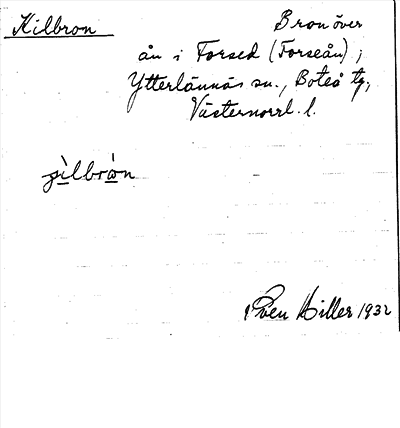 Kilbron Bron över
ån i Forsed (Forseån);
Ytterlännäs sn., Boteå tg,
Västernorrl. l.
Sven Hiller 1932